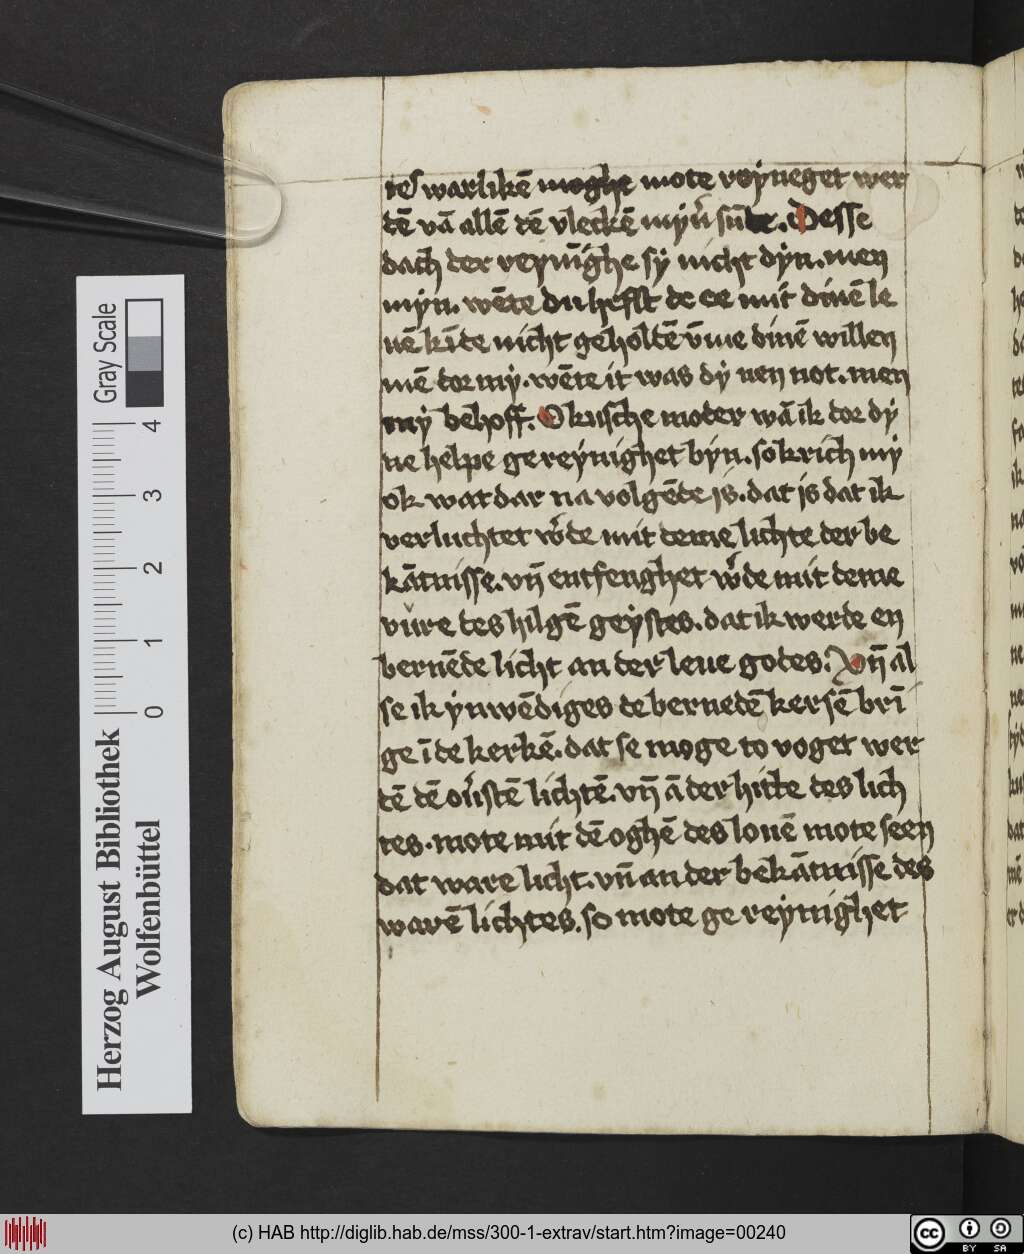 warlikē moghe mote reyneget wer
dē vā allē dē vleckē myn̄ sun Desse
dach der reynīghe sy nicht dyn. men
myn. wēte du hefst de ee mit dinē le
uē kīde nicht geholdē v̄me dinē willen
mē dor my. wēte it was dy nen not. men
my behoff. O kusche moder wā ik dor dy
ne helpe gereynighet byn. so krich my
ok wat dar na volgēde is. dat is dat ik
verluchtet w̄de mit deme lichte der be
kātnisse. vn̄ entfenghet w̄de mit deme
vure des hilgē geystes. dat ik werde en
bernēde licht an der leue godes. Vn̄ al
se ik ynwēdiges de bernedē kersē brī
ge ī de kerkē. dat se moge to voget wer
dē dē ou̓stē lichtē. vn̄ ā der hitte des lich
tes. mote mit dē oghē des louē mote seen
dat ware licht. vn̄ an der bekātnisse des
warē lichtes. so mote ge reynighet
Herzog August Bibliothek
Wolfenbüttel
0 1 2 3 4
Gray Scale
(c) HAB http://diglib.hab.de/mss/300-1-extrav/start.htm?image=00240
cc BY SA